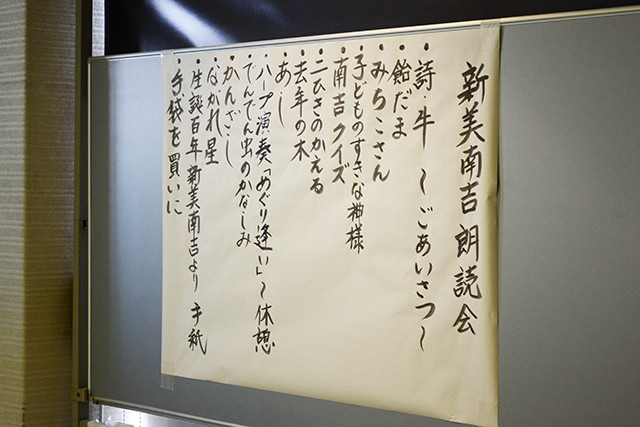 新美南吉 朗読会
・詩・牛 〜ごあいさつ〜
・飴だま
・みちこさん
・子どものすきな神様
・南吉クイズ
・二ひきのかえる
・去年の木
・あし
・ハープ演奏「めぐり逢い」〜休憩
・でんでん虫のかなしみ
・かんざし
・ながれ星
・生誕百年新美南吉より 手紙
・手袋を買いに